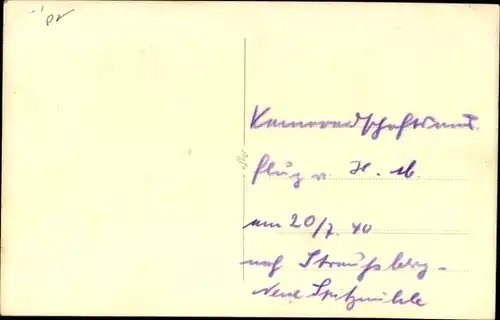 Kameradschaftsaus-
flug v. H. M.
am 20/7. 40
nach Straußberg -
Neue Spitzmühle